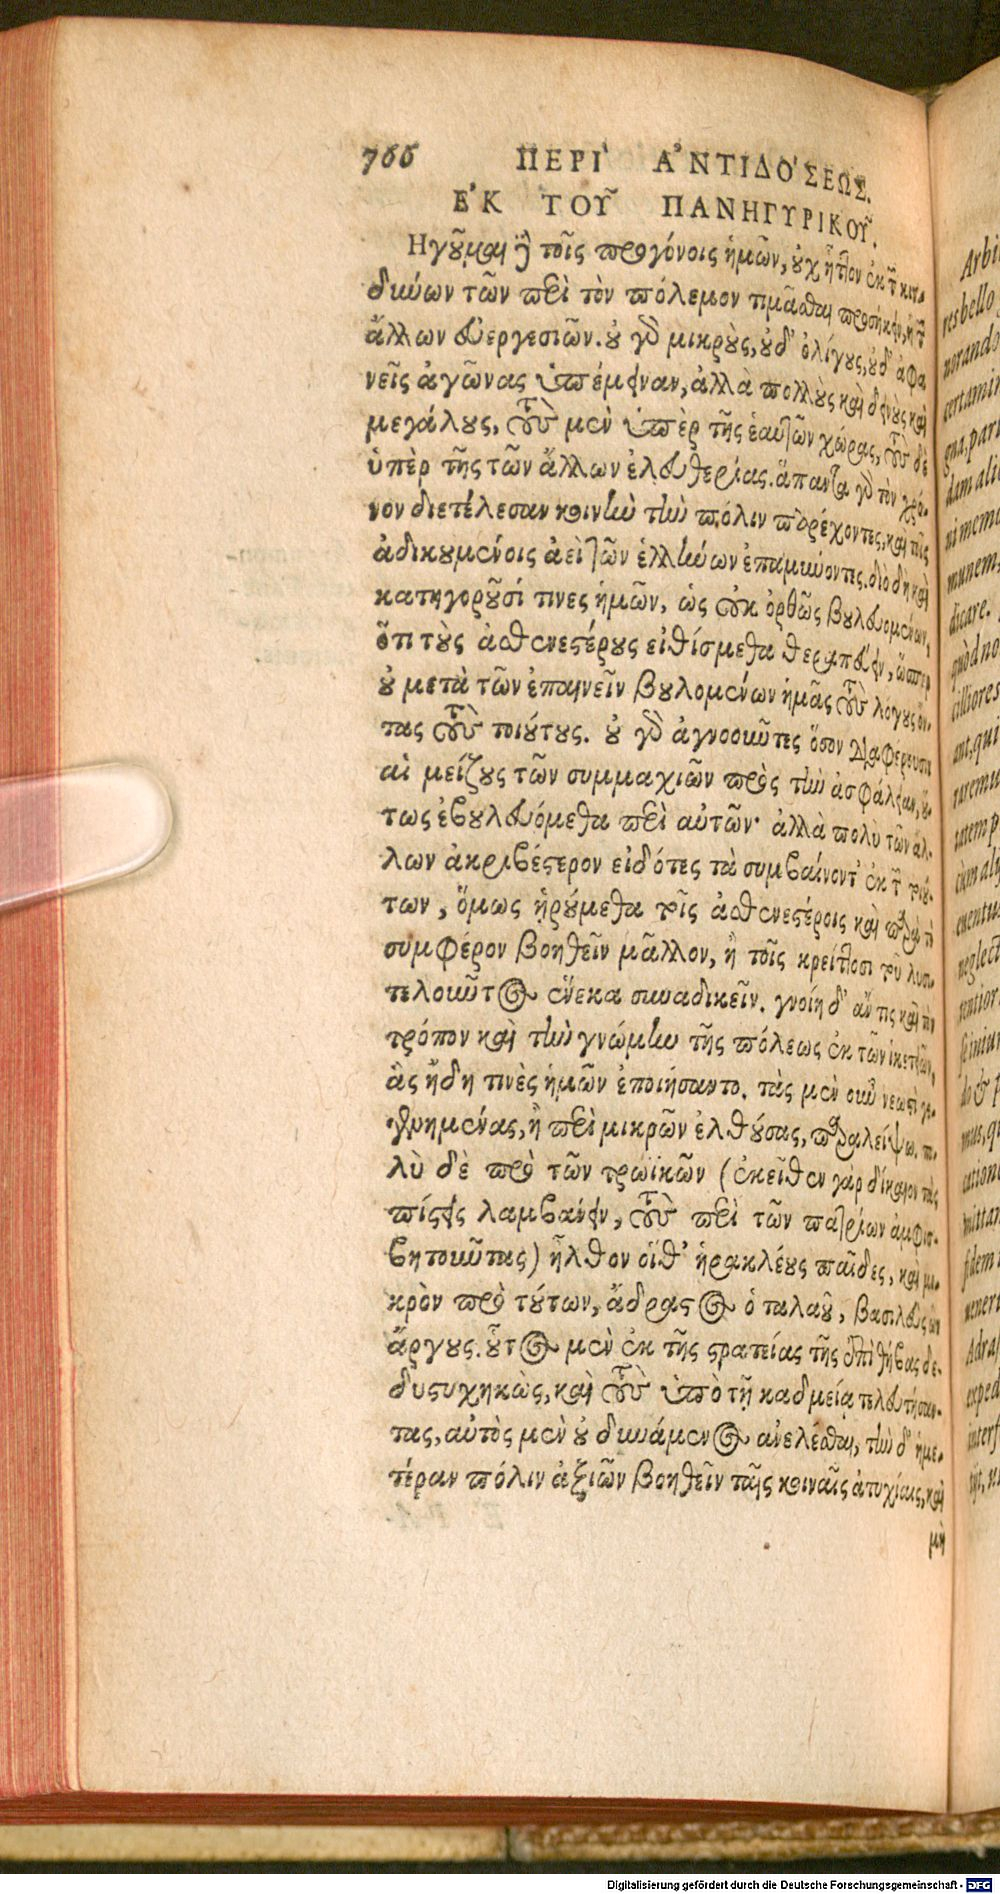 766 ΠΕΡΙ ἈΝΤΙΔΟΣΕΩΣ.
ἘΚ ΤΟΥ͂ ΠΑΝΗΓΥΡΙΚΟΥ͂.
Ηγοῦμαι καὶ τοῖς προγόνοις ἡμῶν, οὐχ ἧττον ἐκ τῶν κιν-
δύνων τῶν περὶ τὸν πόλεμον τιμᾶσθαι προσήκειν, ἢ τῶν
ἄλλων εὐεργεσιῶν. οὐ γὰρ μικροὺς, οὐδ' ὀλίγους, οὐδ' ἀφα
νεῖς ἀγῶνας ὑπέμειναν, ἀλλὰ πολλοὺς καὶ δεινοὺς καὶ
μεγάλους, τοὺς μὲν ὑπὲρ τῆς ἑαυτῶν χώρας, τοὺς δὲ
ὑπὲρ τῆς τῶν ἄλλων ἐλευθερίας. ἅπαντα γὰρ τὸν χρό-
νον διετέλεσαν κοινὴν τὴν πόλιν παρέχοντες, καὶ τοῖς
ἀδικουμένοις ἀεὶ τῶν ἑλλήνων ἐπαμύνοντες. διὸ δὴ καὶ
κατηγοροῦσί τινες ἡμῶν, ὡς οὐκ ὀρθῶς βουλευομένων,
ὅτι τοὺς ἀσθενεστέρους εἰθίσμεθα θεραπεύειν, ὥσπερ
οὐ μετὰ τῶν ἐπαινεῖν βουλομένων ἡμᾶς τοὺς λόγους ὄν-
τας τοὺς τοιούτους. οὐ γὰρ ἀγνοοῦντες ὅσον διαφέρουσιν
αἱ μείζους τῶν συμμαχιῶν πρὸς τὴν ἀσφάλειαν, οὕ-
τως ἐβουλευόμεθα περὶ αὐτῶν· ἀλλὰ πολὺ τῶν ἄλ-
λων ἀκριβέστερον εἰδότες τὰ συμβαίνοντ' ἐκ τῶν τοιού-
των, ὅμως ᾑρούμεθα τοῖς ἀσθενεστέροις καὶ παρὰ τὸ
συμφέρον βοηθεῖν μᾶλλον, ἢ τοῖς κρείττοσι τοῦ λυσι-
τελοῦντος ἕνεκα συναδικεῖν. γνοίη δ' ἄν τις καὶ τὸν
τρόπον καὶ τὴν γνώμην τῆς πόλεως ἐκ τῶν ἱκετειῶν,
ἃς ἤδη τινὲς ἡμῶν ἐποιήσαντο. τὰς μὲν οὖν νεωστὶ γε-
γενημένας, ἢ περὶ μικρῶν ἐλθούσας, παραλείψω. πο-
λὺ δὲ πρὸ τῶν τρωϊκῶν (ἐκεῖθεν γὰρ δίκαιον τὰς
πίστεις λαμβάνειν, τοὺς περὶ τῶν πατρίων ἀμφισ-
βητοῦντας) ἦλθον οἵθ' ἡρακλέους παῖδες, καὶ μι-
κρὸν πρὸ τούτων, ἄδραστος ὁ ταλαοῦ, βασιλεὺς ὢν
ἄργους. οὗτος μὲν ἐκ τῆς στρατείας τῆς ἐπὶ θήβας δε-
δυστυχηκὼς, καὶ τοὺς ὑπὸ τῇ καδμείᾳ τελευτήσαν-
τας, αὐτὸς μὲν οὐ δυνάμενος ἀνελέσθαι, τὴν δ' ἡμε-
τέραν πόλιν ἀξιῶν βοηθεῖν ταῖς κοιναῖς ἀτυχίαις, καὶ
μὴ
Arbi
res bello
norando
certamin
gna, par
dam ali
ni memo
munem,
dicare.
quòd no
cilliores
ant, qui
neglect
do & p
mus, q
mittan
fidem
Adra
exped
interf
Digitalisierung gefördert durch die Deutsche Forschungsgemeinschaft - DFG